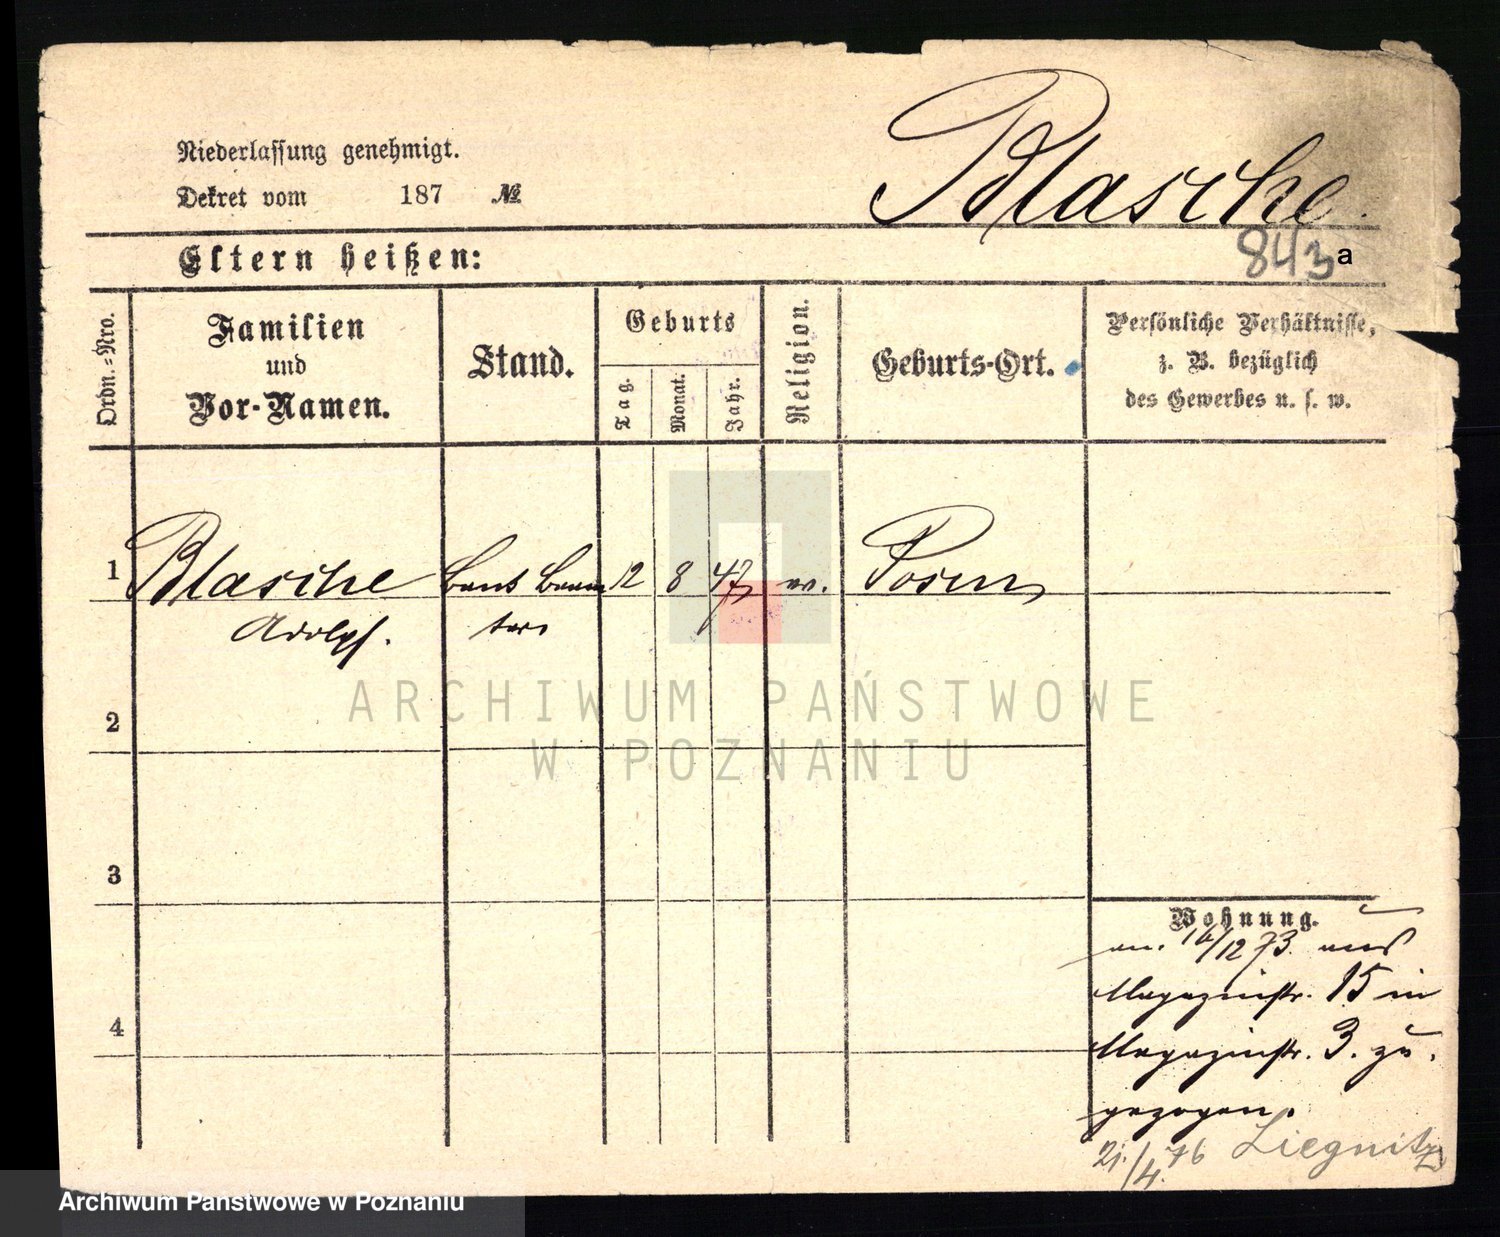 Niederlassung genehmigt.
Dekret vom 187 №
Blasche.
843 a
Eltern heißen:
Ordn.-Nro.
Familien
und
Vor-Namen.
Stand.
Geburts
Tag.
Monat.
Jahr.
Religion.
Geburts-Ort.
Persönliche Verhältnisse,
z. B. bezüglich
des Gewerbes u. s. w.
1 Blasche 12 8 47 Posen
Adolph.
2
3
4
Wohnung.
12 73. aus
Magazinstr. 15 in
Magazinstr. 3. zu.
gezogen.
21./4.76 Liegnitz
ARCHIWUM PAŃSTWOWE
W POZNANIU
Archiwum Państwowe w Poznaniu